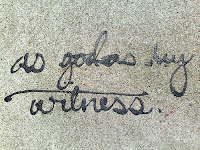 as god as my
witness.